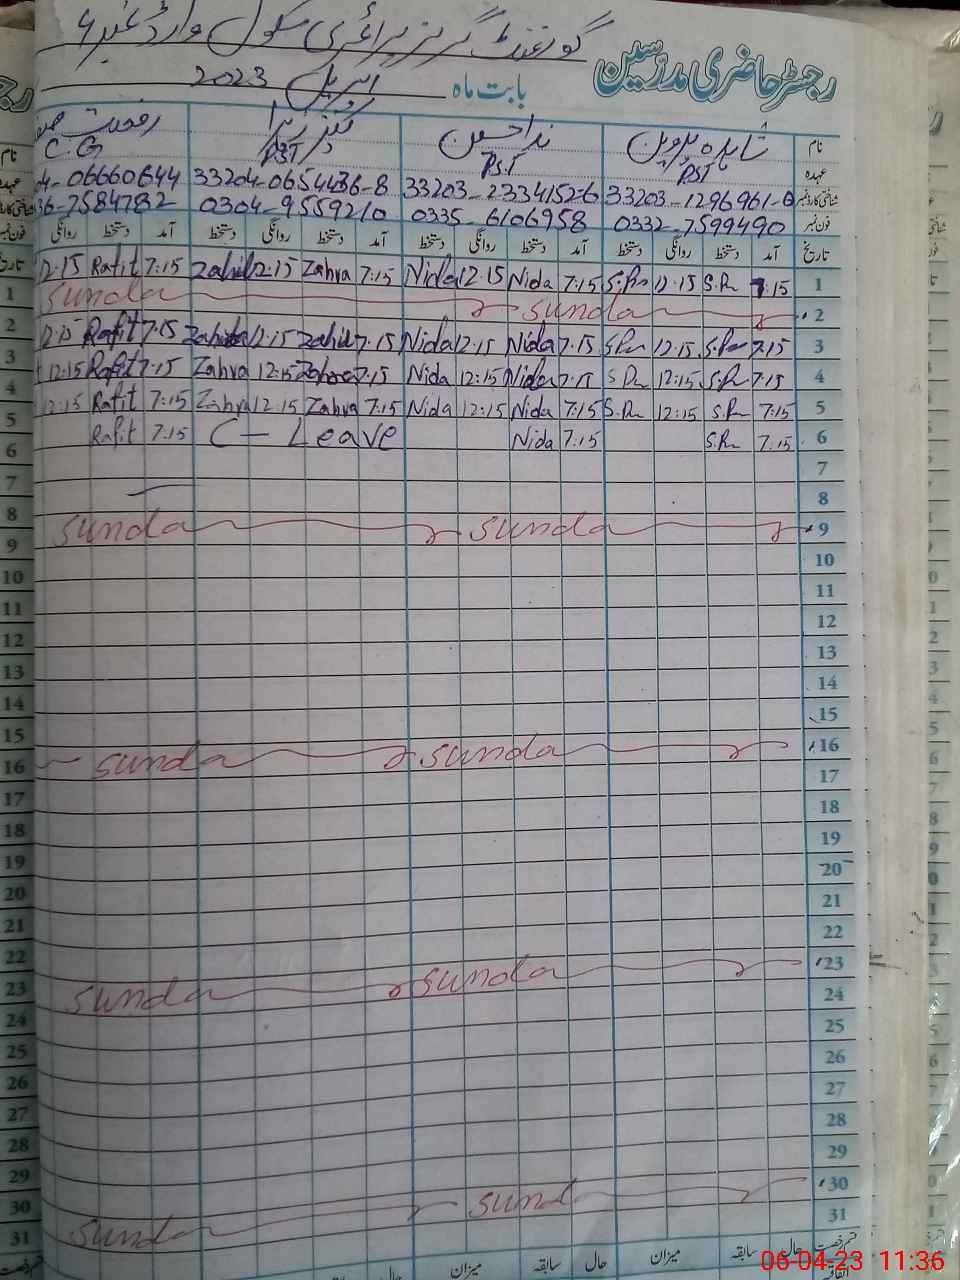 گورنمنٹ گرلز پرائمری سکول وارڈ نمبر 4
رجسٹر حاضری مدرسین
بابت ماہ اپریل 2023
نام شاہدہ پروین ندا حسین کنیز زہرا رفعت
عہدہ PST PST PST C.G
شناختی کارڈ نمبر 33203-1296961-0 33203-2334152-6 33204-0654436-8 04-06660644
فون نمبر 0332-7599490 0335-6106958 0304-9559210 36-7584782
تاریخ آمد دستخط روانگی دستخط آمد دستخط روانگی دستخط آمد دستخط روانگی دستخط آمد دستخط روانگی
1 7:15 S.Pn 12:15 S.Pn 7:15 Nida 12:15 Nida 7:15 Zahra 12:15 Zahra 7:15 Rafit 12:15
2 sunda sunda
3 7:15 S.Pn 12:15 S.Pn 7:15 Nida 12:15 Nida 7:15 Zahra 12:15 Zahra 7:15 Rafit 12:15
4 7:15 S.Pn 12:15 S.Pn 7:15 Nida 12:15 Nida 7:15 Zahra 12:15 Zahra 7:15 Rafit 12:15
5 7:15 S.Pn 12:15 S.Pn 7:15 Nida 12:15 Nida 7:15 Zahra 12:15 Zahra 7:15 Rafit 12:15
6 7:15 S.Pn 7:15 Nida C - Leave 7:15 Rafit
7
8
9 sunda sunda
10
11
12
13
14
15
16 sunda sunda
17
18
19
20
21
22
23 sunda sunda
24
25
26
27
28
29
30 sund sunda
31
قسم رخصت حال سابقہ میزان حال سابقہ میزان حال
اتفاقیہ
06-04-23 11:36